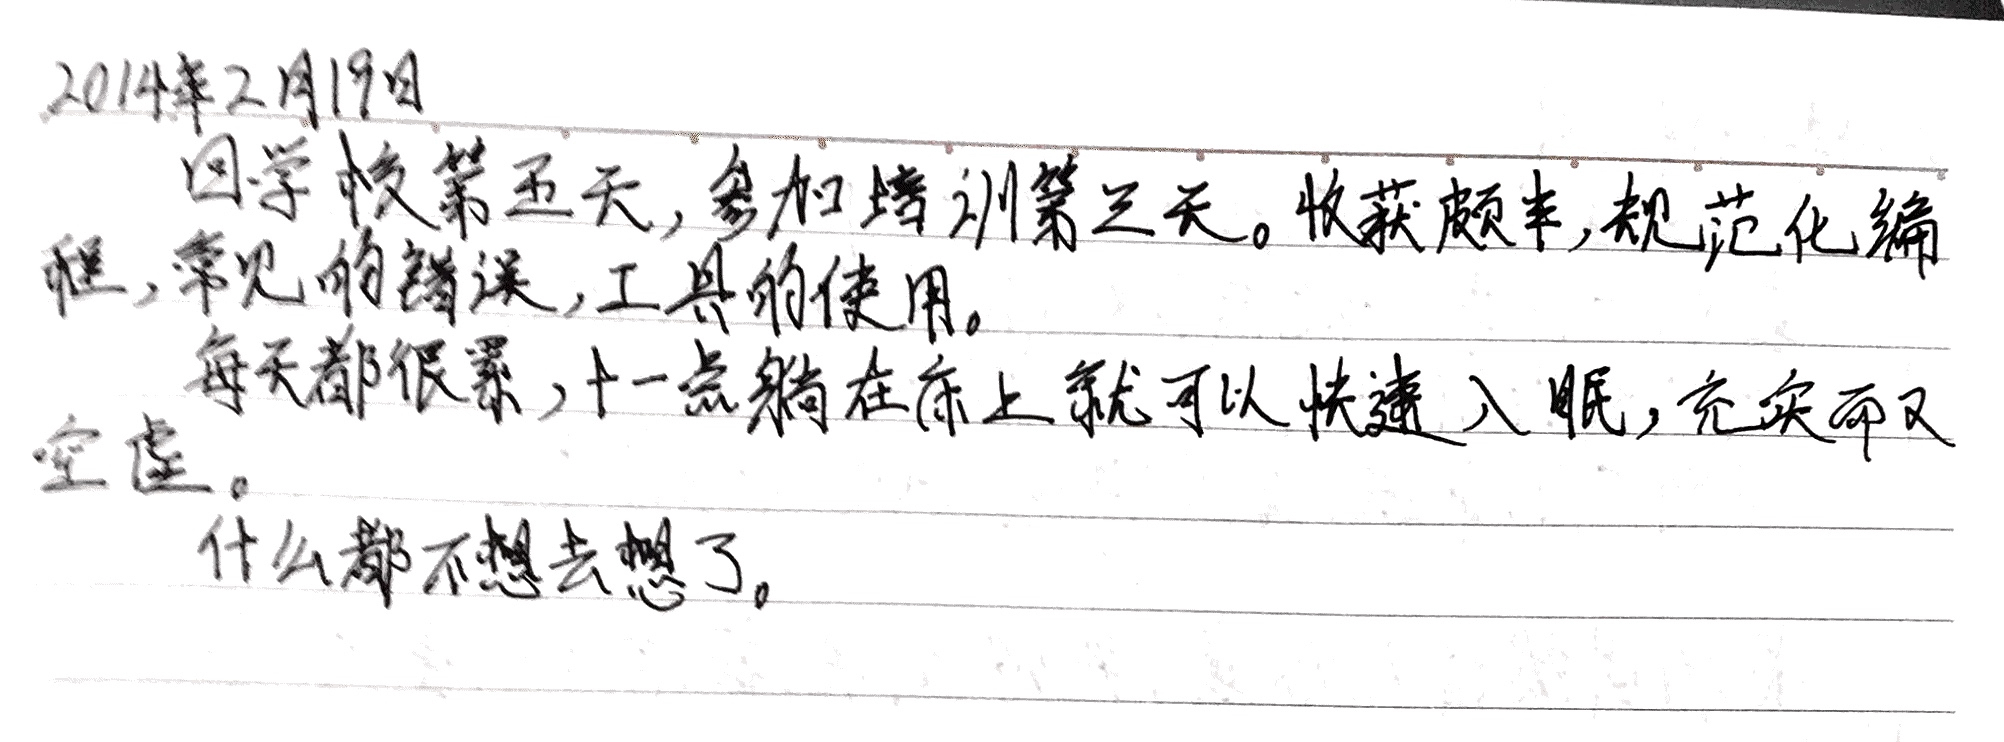 2014年2月19日
回学校第五天,参加培训第三天。收获颇丰,规范化编
程,常见的错误,工具的使用。
每天都很累,十一点躺在床上就可以快速入眠,充实而又
空虚。
什么都不想去想了。